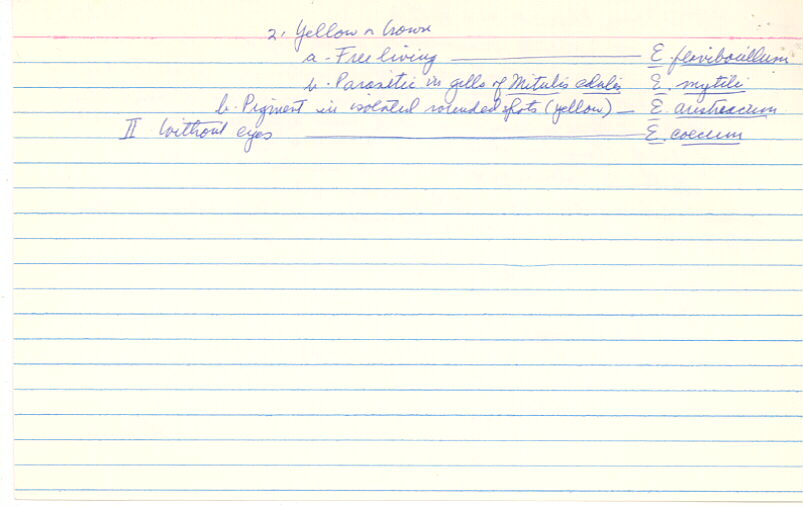 2. Yellow or brown
a - Free living — E. flavibacillum
b - Parasitic in gills of Mitulis edulis E. mytili
b. Pigment in isolated rounded spots (yellow) — E. austreacum
II Without eyes — E. coecum